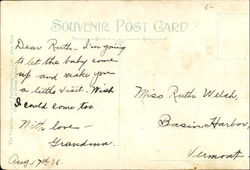 5-
SOUVENIR POST CARD
Dear Ruth - I'm going
to let the baby come
up and make you
a little visit. Wish
I could come too
With love -
Grandma.
Aug. 17th
Miss Ruth Welsh,
Basin Harbor,
Vermont.